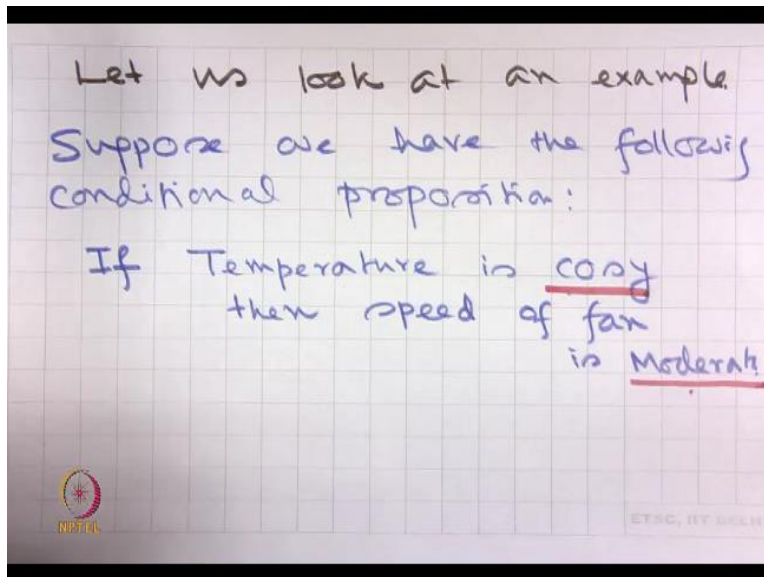 Let us look at an example
Suppose we have the followig
conditional proposition:
If Temperature is cosy
then speed of fan
is Moderate
NPTEL
ETSC, IIT DELHI